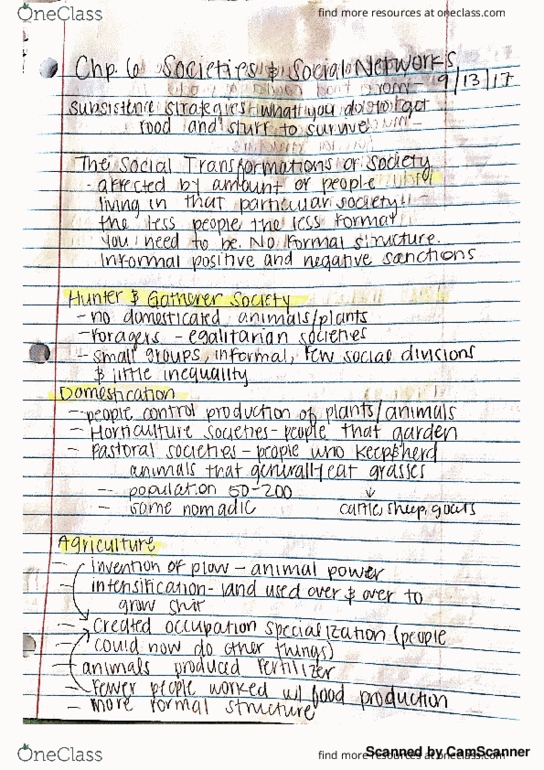 OneClass
find more resources at oneclass.com
Chp. 6 Societies & Social Networks
9/13/17
subsistence strategies what you do to get
food and stuff to survive
The Social Transformations of Society
- affected by amount of people
living in that particular society
the less people the less formal
you need to be. No formal structure.
Informal positive and negative sanctions
Hunter & Gatherer Society
- no domesticard animals/plants
- foragers - egalitarian societies
- small groups, informal, few social divisions
& little inequality
Domestication
- people control production of plants/animals
- Horticulture societies - people that garden
- pastoral societies - people who keep&herd
animals that generally eat grasses
- population 50-200
- some nomadic
cattle, sheep, goats
Agriculture
- invention of plow - animal power
- intensification - land used over & over to
grow shit
- Created occupation specialization (people
could now do other things)
- animals produced fertilizer
- Fewer people worked w/ food production
- more formal structure
OneClass
find more resources at oneclass.com
Scanned by CamScanner